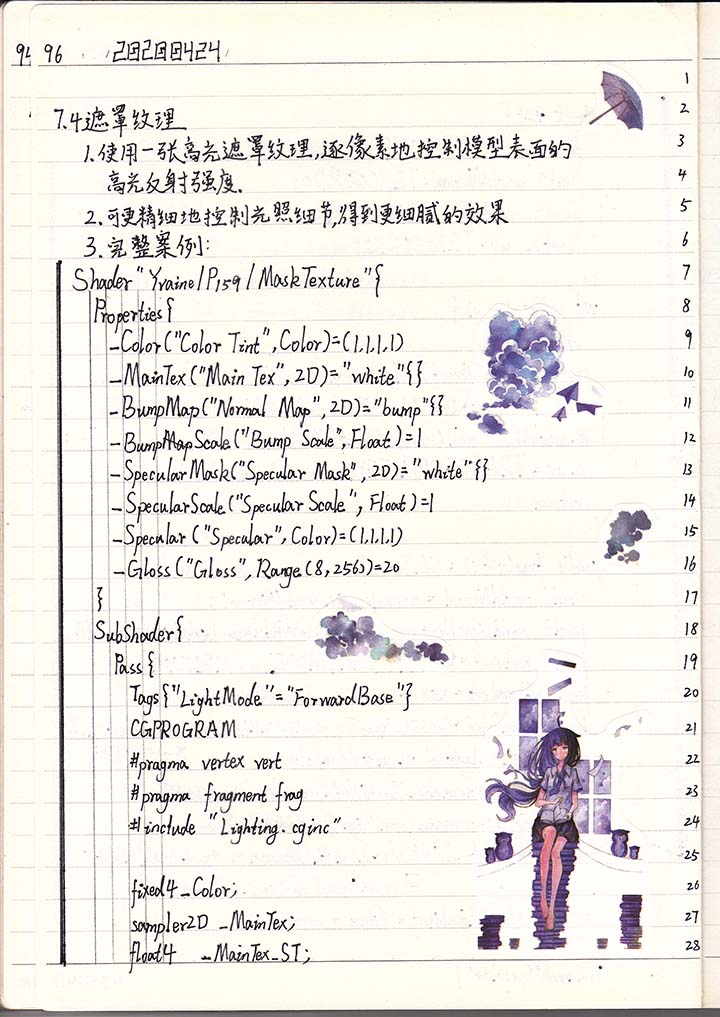 96 20200424
7.4遮罩纹理
1.使用一张高光遮罩纹理,逐像素地控制模型表面的
高光反射强度.
2.可更精细地控制光照细节,得到更细腻的效果
3.完整案例:
Shader"Yvaine/P159/MaskTexture"{
Properties{
_Color("Color Tint",Color)=(1,1,1,1)
_MainTex("Main Tex",2D)="white"{}
_BumpMap("Normal Map",2D)="bump"{}
_BumpMapScale("Bump Scale",Float)=1
_SpecularMask("Specular Mask",2D)="white"{}
_SpecularScale("Specular Scale",Float)=1
_Specular("Specular",Color)=(1,1,1,1)
_Gloss("Gloss",Range(8,256))=20
}
SubShader{
Pass{
Tags{"LightMode"="ForwardBase"}
CGPROGRAM
#pragma vertex vert
#pragma fragment frag
#include "Lighting.cginc"
fixed4 _Color;
sampler2D _MainTex;
float4 _MainTex_ST;
1
2
3
4
5
6
7
8
9
10
11
12
13
14
15
16
17
18
19
20
21
22
23
24
25
26
27
28